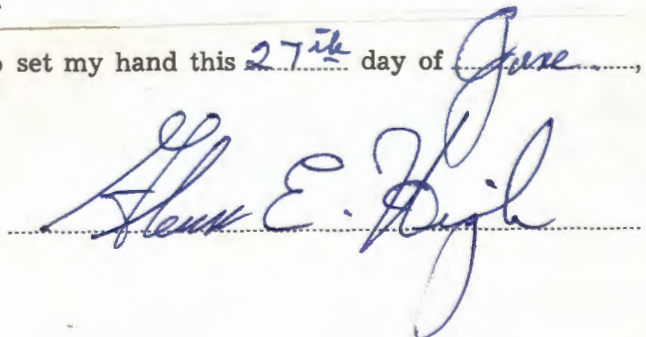 set my hand this 27th day of June,
Glenn E. High